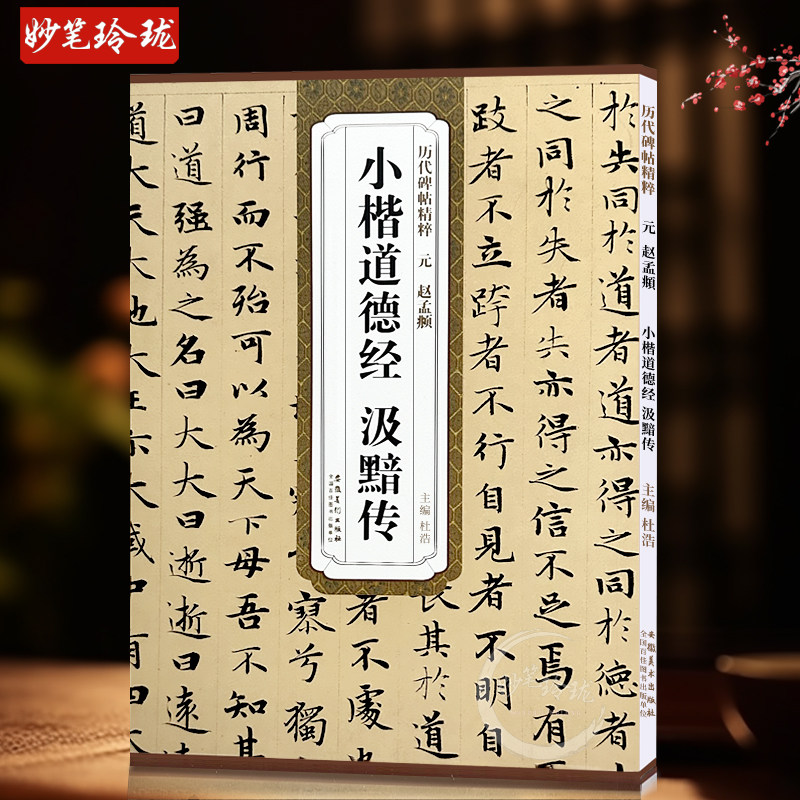 妙笔玲珑
於失同於道者道亦得之同於德者
之同於失者失亦得之信不足焉有
跂者不立跨者不行自見者不明自
長其於道
者不處也
寥兮獨
周行而不殆可以為天下母吾不知其
曰道強為之名曰大大曰逝逝曰遠遠
道大天大地大王亦大域中有四大
历代碑帖精粹 元 赵孟頫
小楷道德经 汲黯传
主编 杜浩
安徽美术出版社
全国百佳图书出版单位
历代碑帖精粹 元 赵孟頫 小楷道德经 汲黯传 主编 杜浩
安徽美术出版社
全国百佳图书出版单位
妙笔玲珑